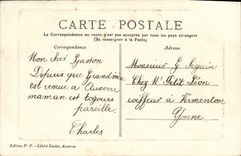 CARTE POSTALE
La Correspondance au recto n'est pas acceptée par tous les pays étrangers
(Se renseigner à la Poste)
Correspondance
Adresse
Mon cher Gaston
Depuis que Grand'mère
est venue a Auxerre
maman est toujours
pareille.
Charles
Monsieur G Seguin
Chez Mr Petit Léon
coiffeur à Vermenton
Yonne
Edition P. T. - Cliché Toulot, Auxerre